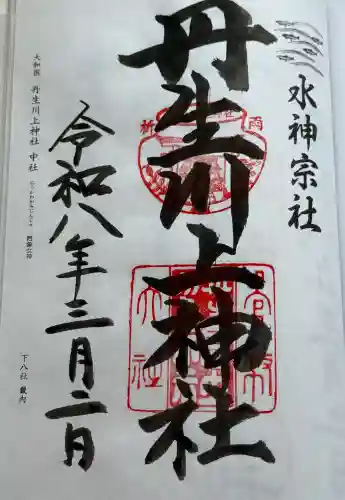 水神宗社
丹生川上神社
令和八年三月二日
大和國 丹生川上神社 中社
下八社 畿内